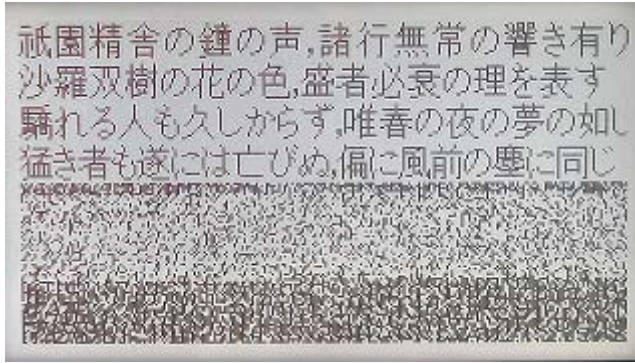 祇園精舎の鐘の声,諸行無常の響き有り
沙羅双樹の花の色,盛者必衰の理を表す
驕れる人も久しからず,唯春の夜の夢の如し
猛き者も遂には亡びぬ,偏に風前の塵に同じ